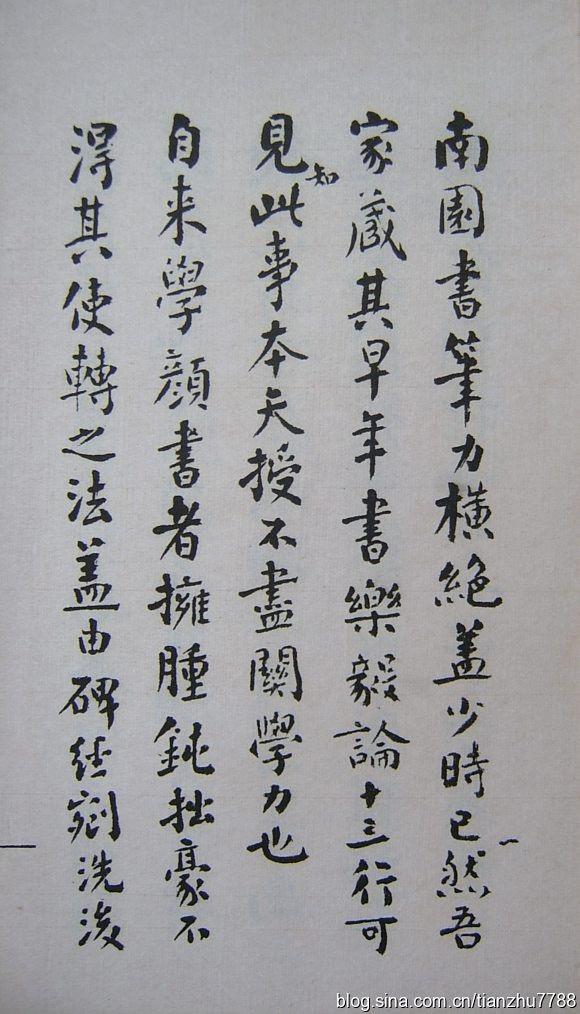 南園書筆力橫絕蓋少時已然吾
家藏其早年書樂毅論十三行可
見此事本天授不盡關學力也
知
自来學顏書者擁腫鈍拙豪不
淂其使轉之法蓋由碑經剜洗浚
blog.sina.com.cn/tianzhu7788